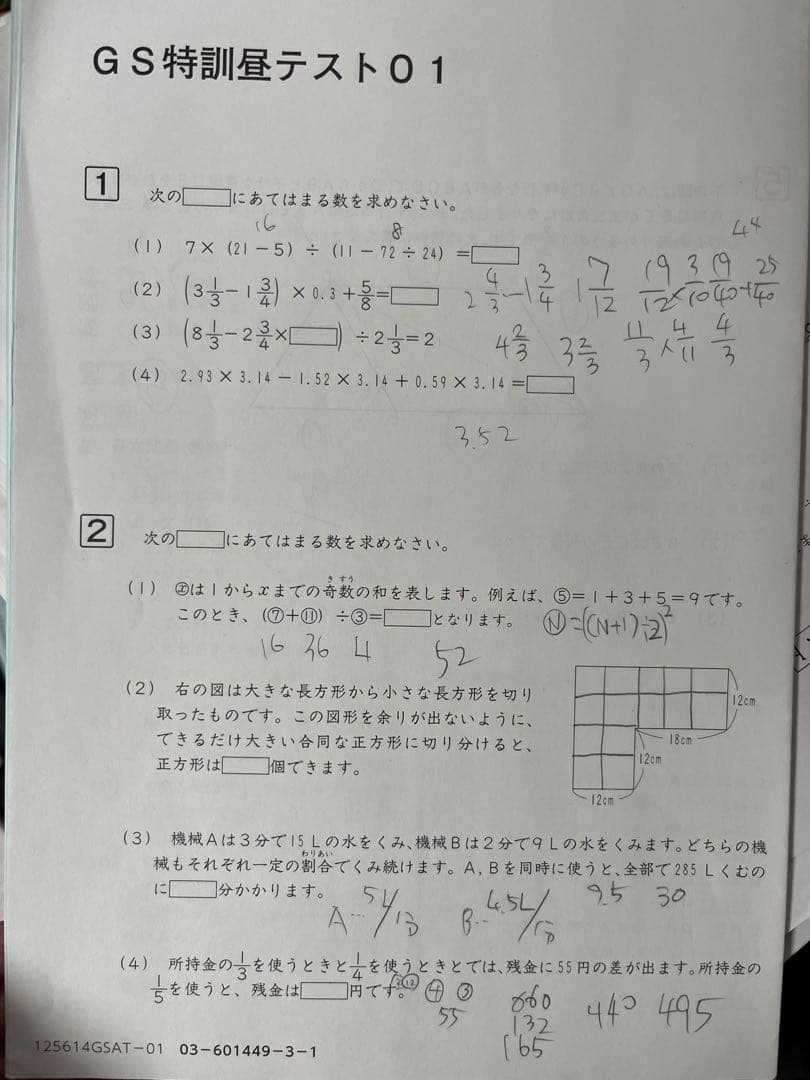 GS特訓昼テスト01
1 次の□にあてはまる数を求めなさい。
16 8 44
(1) 7×(21−5)÷(11−72÷24)=□
(2) (3 1/3−1 3/4)×0.3+5/8=□ 2 4/3−1 3/4 1 7/12 19/12×3/10 19/40+25/40
(3) (8 1/3−2 3/4×□)÷2 1/3=2 4 2/3 3 2/3 11/3×4/11 4/3
(4) 2.93×3.14−1.52×3.14+0.59×3.14=□
3.52
2 次の□にあてはまる数を求めなさい。
(1) ⓧは1からxまでの奇数の和を表します。例えば、⑤=1+3+5=9です。
きすう
このとき、(⑦+⑪)÷③=□となります。 Ⓝ=((N+1)÷2)²
16 36 4 52
(2) 右の図は大きな長方形から小さな長方形を切り
取ったものです。この図形を余りが出ないように、
できるだけ大きい合同な正方形に切り分けると、
正方形は□個できます。
12cm
18cm
12cm
12cm
(3) 機械Aは3分で15Lの水をくみ、機械Bは2分で9Lの水をくみます。どちらの機
わりあい
械もそれぞれ一定の割合でくみ続けます。A，Bを同時に使うと、全部で285Lくむの
に□分かかります。 A… 5L/1分 B… 4.5L/1分 9.5 30
(4) 所持金の1/3を使うときと1/4を使うときとでは、残金に55円の差が出ます。所持金の
1/5を使うと、残金は□円です。 ⑫ ④ ③ 660 440 495
55 132
165
125614GSAT−01 03−601449−3−1